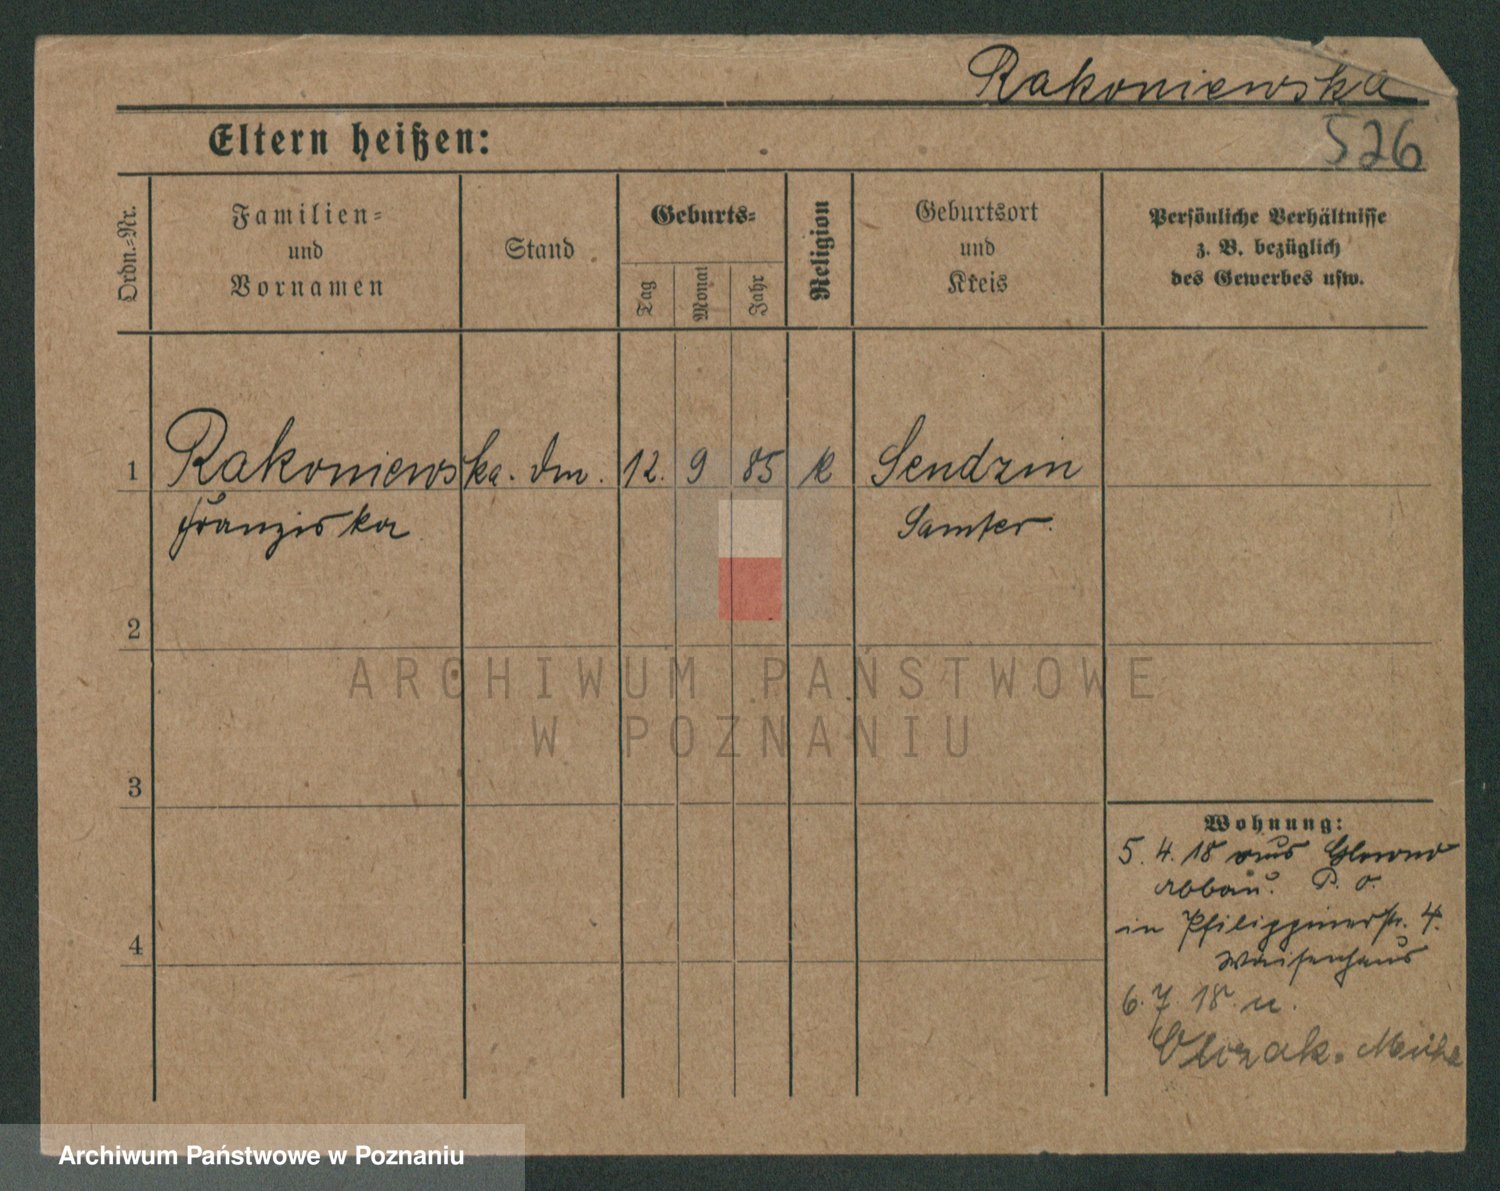 Rakoniewska
526
Eltern heißen:
Ordn.=Nr.
Familien=
und
Vornamen
Stand
Geburts=
Tag
Monat
Jahr
Religion
Geburtsort
und
Kreis
Persönliche Verhältnisse
z. B. bezüglich
des Gewerbes usw.
1 Rakoniewska. Dm. 12. 9 85 k Sendzin
Franziska Samter.
2
ARCHIWUM PAŃSTWOWE
W POZNANIU
3
Wohnung:
5. 4. 18 aus Glowno
Abbau. P. O.
in Philippinerstr. 4.
Waisenhaus
4
6. 7. 18. n.
Mühle
Archiwum Państwowe w Poznaniu